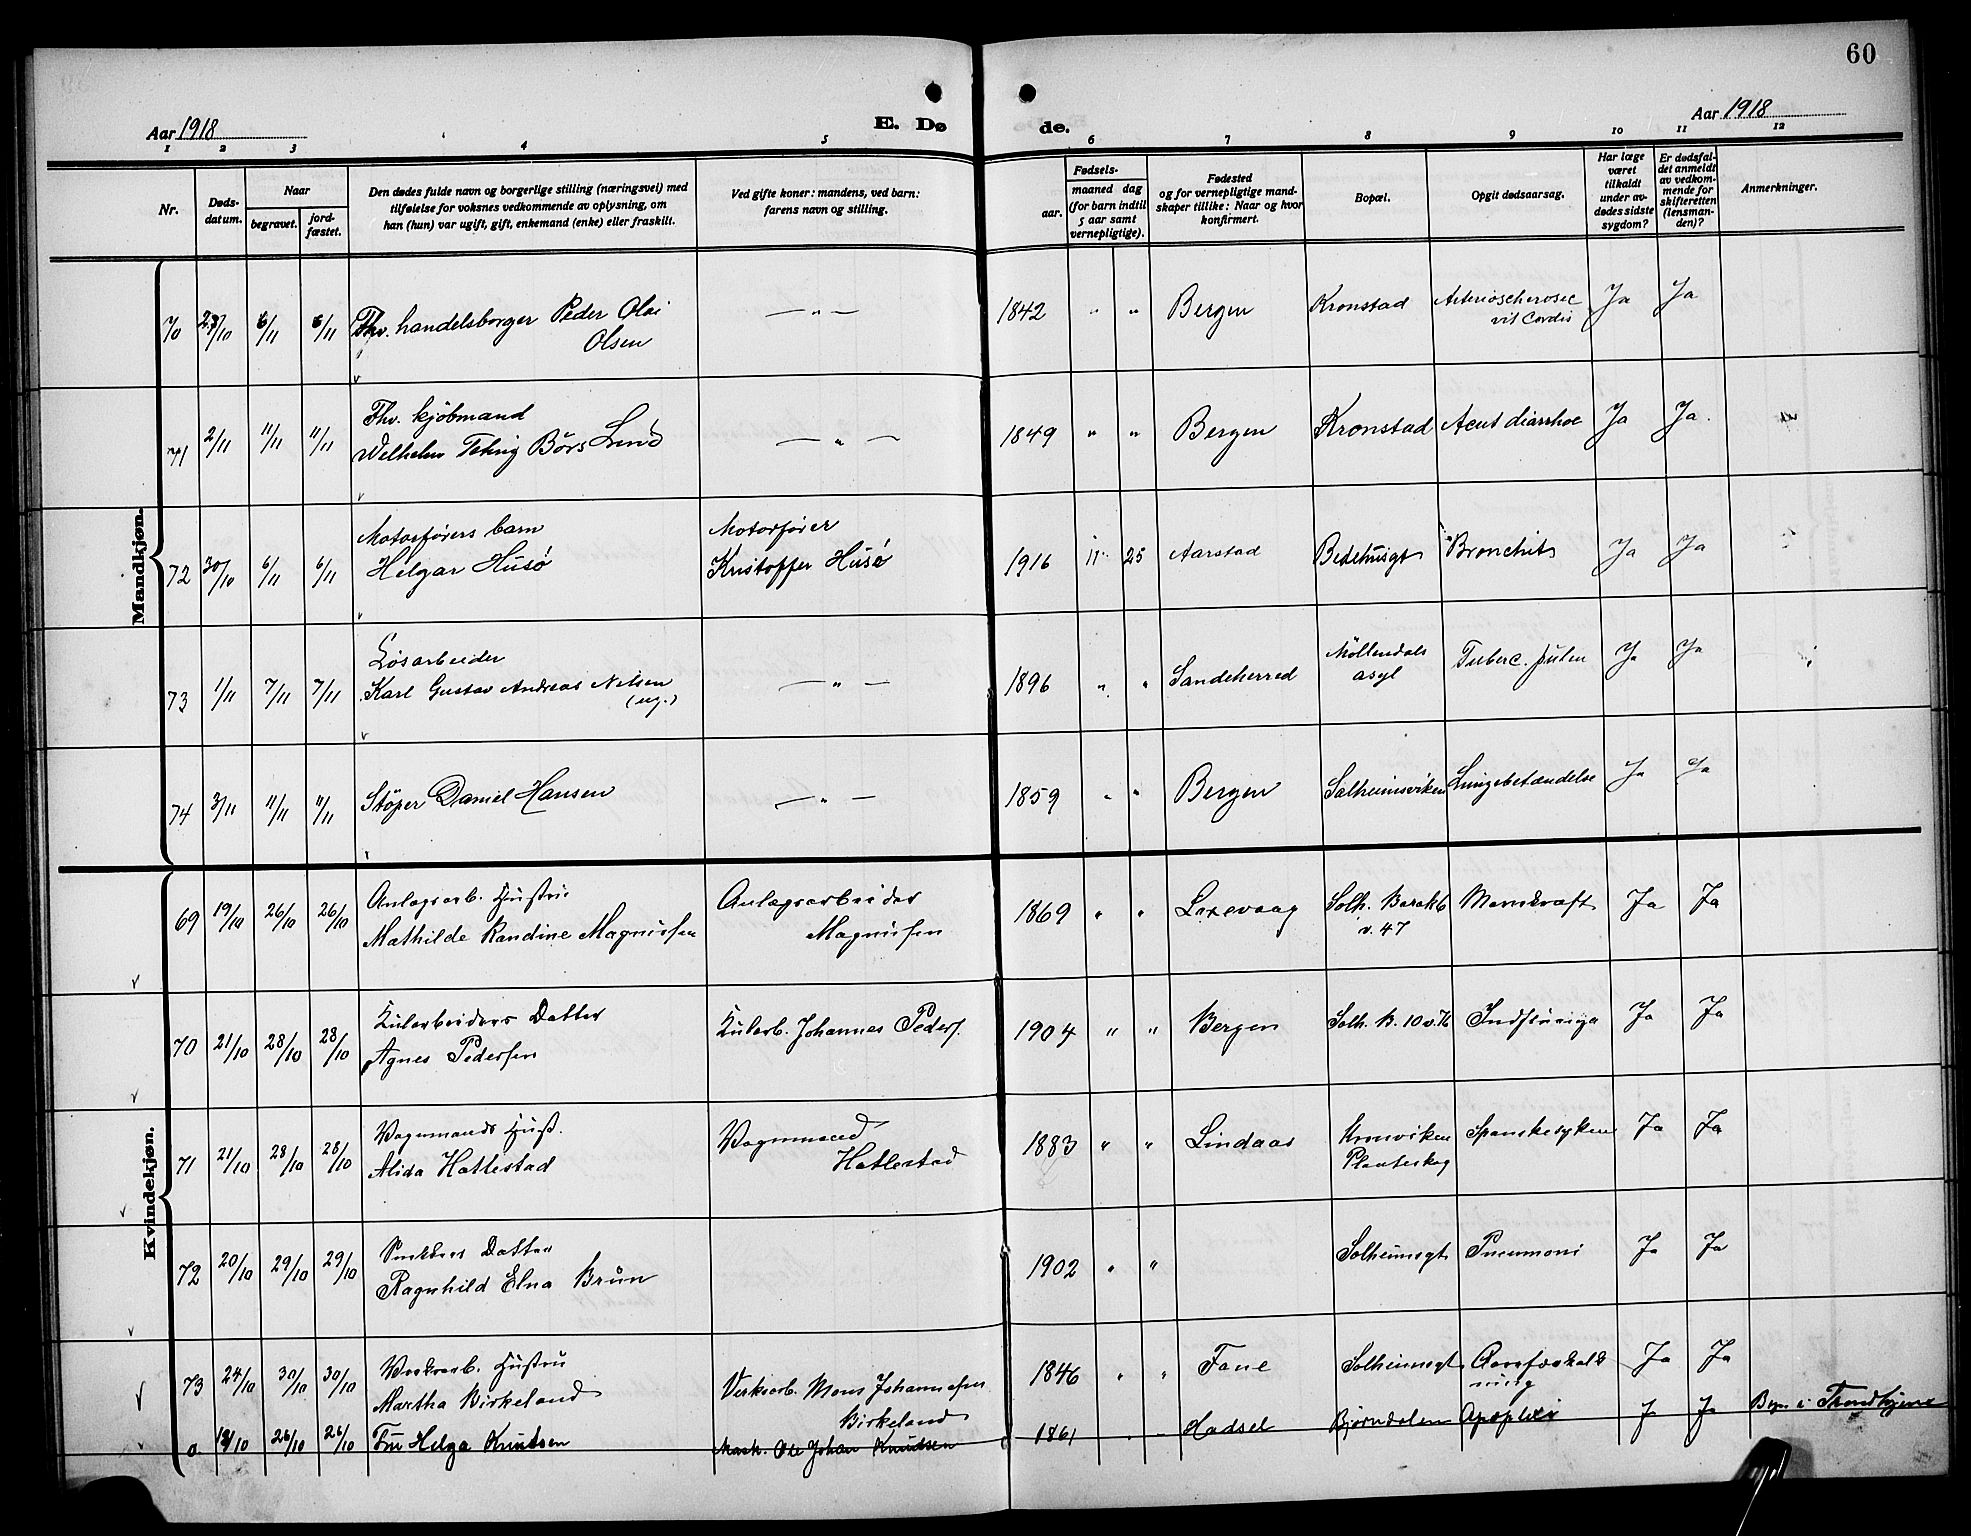 60
Aar 1918
E. Dø
de.
Aar 1918
1 2 3 4 5 6 7 8 9 10 11 12
Nr.
Døds-
datum.
Naar
begravet.
jord-
fæstet.
Den dødes fulde navn og borgerlige stilling (næringsvei) med
tilføielse for voksnes vedkommende av oplysning, om
han (hun) var ugift, gift, enkemand (enke) eller fraskilt.
Ved gifte koner: mandens, ved barn:
farens navn og stilling.
Fødsels-
aar.
maaned dag
(for barn indtil
5 aar samt
vernepligtige).
Fødested
og for vernepligtige mand-
skaper tillike: Naar og hvor
konfirmert.
Bopæl.
Opgit dødsaarsag.
Har læge
været
tilkaldt
under av-
dødes sidste
sygdom?
Er dødsfal-
det anmeldt
av vedkom-
mende for
skifteretten
(lensman-
den)?
Anmerkninger.
Mandkjøn.
70 27/10 6/11 6/11 Fhv. handelsborger Peder Olai
Olsen
— " — 1842 " " Bergen Kronstad
vit Cordis
Ja Ja
71 2/11 11/11 11/11 Fhv. kjøbmand
Wilhelm Børs Lund
— " — 1849 " " Bergen Kronstad Acut diarrhoe Ja Ja
72 30/10 6/11 6/11 Motorførers barn
Helgar Husø
Motorfører
Kristoffer Husø
1916 11 25 Aarstad Bedehusgt Bronchit Ja Ja
73 1/11 7/11 7/11 Løsarbeider
Karl Gustav Andreas Nilsen
(ug.)
— " — 1896 " " Sandeherred Møllendals
asyl
Ja Ja
74 3/11 11/11 11/11 Støper Daniel Hansen
— " — 1859 " " Bergen Solheimsviken Lungebetændelse Ja Ja
Kvindekjøn.
69 19/10 26/10 26/10 Anlægsarb. Hustru
Mathilde Randine Magnussen
Anlægsarbeider
Magnussen
1869 " " Laxevaag Solh. Barak 6
v. 47
Ja Ja
70 21/10 28/10 28/10 Kularbeiders Datter
Agnes Pedersen
Kularb. Johannes Peders.
1904 " " Bergen Solh. B. 10 v. 76 Indfluensa Ja Ja
71 21/10 28/10 28/10 Vognmands Hust.
Alida Hatlestad
Vognmand
Hatlestad
1883 " " Lindaas Kronviken
Planteskog
Spanskesyken Ja Ja
72 20/10 29/10 29/10 Datter
Ragnhild Elna Brun
1902 " " Solheimsgt Pneumoni Ja Ja
73 24/10 30/10 30/10 Verksarb. Hustru
Martha Birkeland
Verksarb. Mons Johannesen
Birkeland
1846 " " Fane Solheimsgt Aareforkalk
ning
Ja Ja
a. 19/10 26/10 26/10 Fru Helga Knutsen
Mask. Ole Johan Knudsen
1861 Hadsel Bjørndalen Apoplexi Ja Ja Begr. i Trondhjem